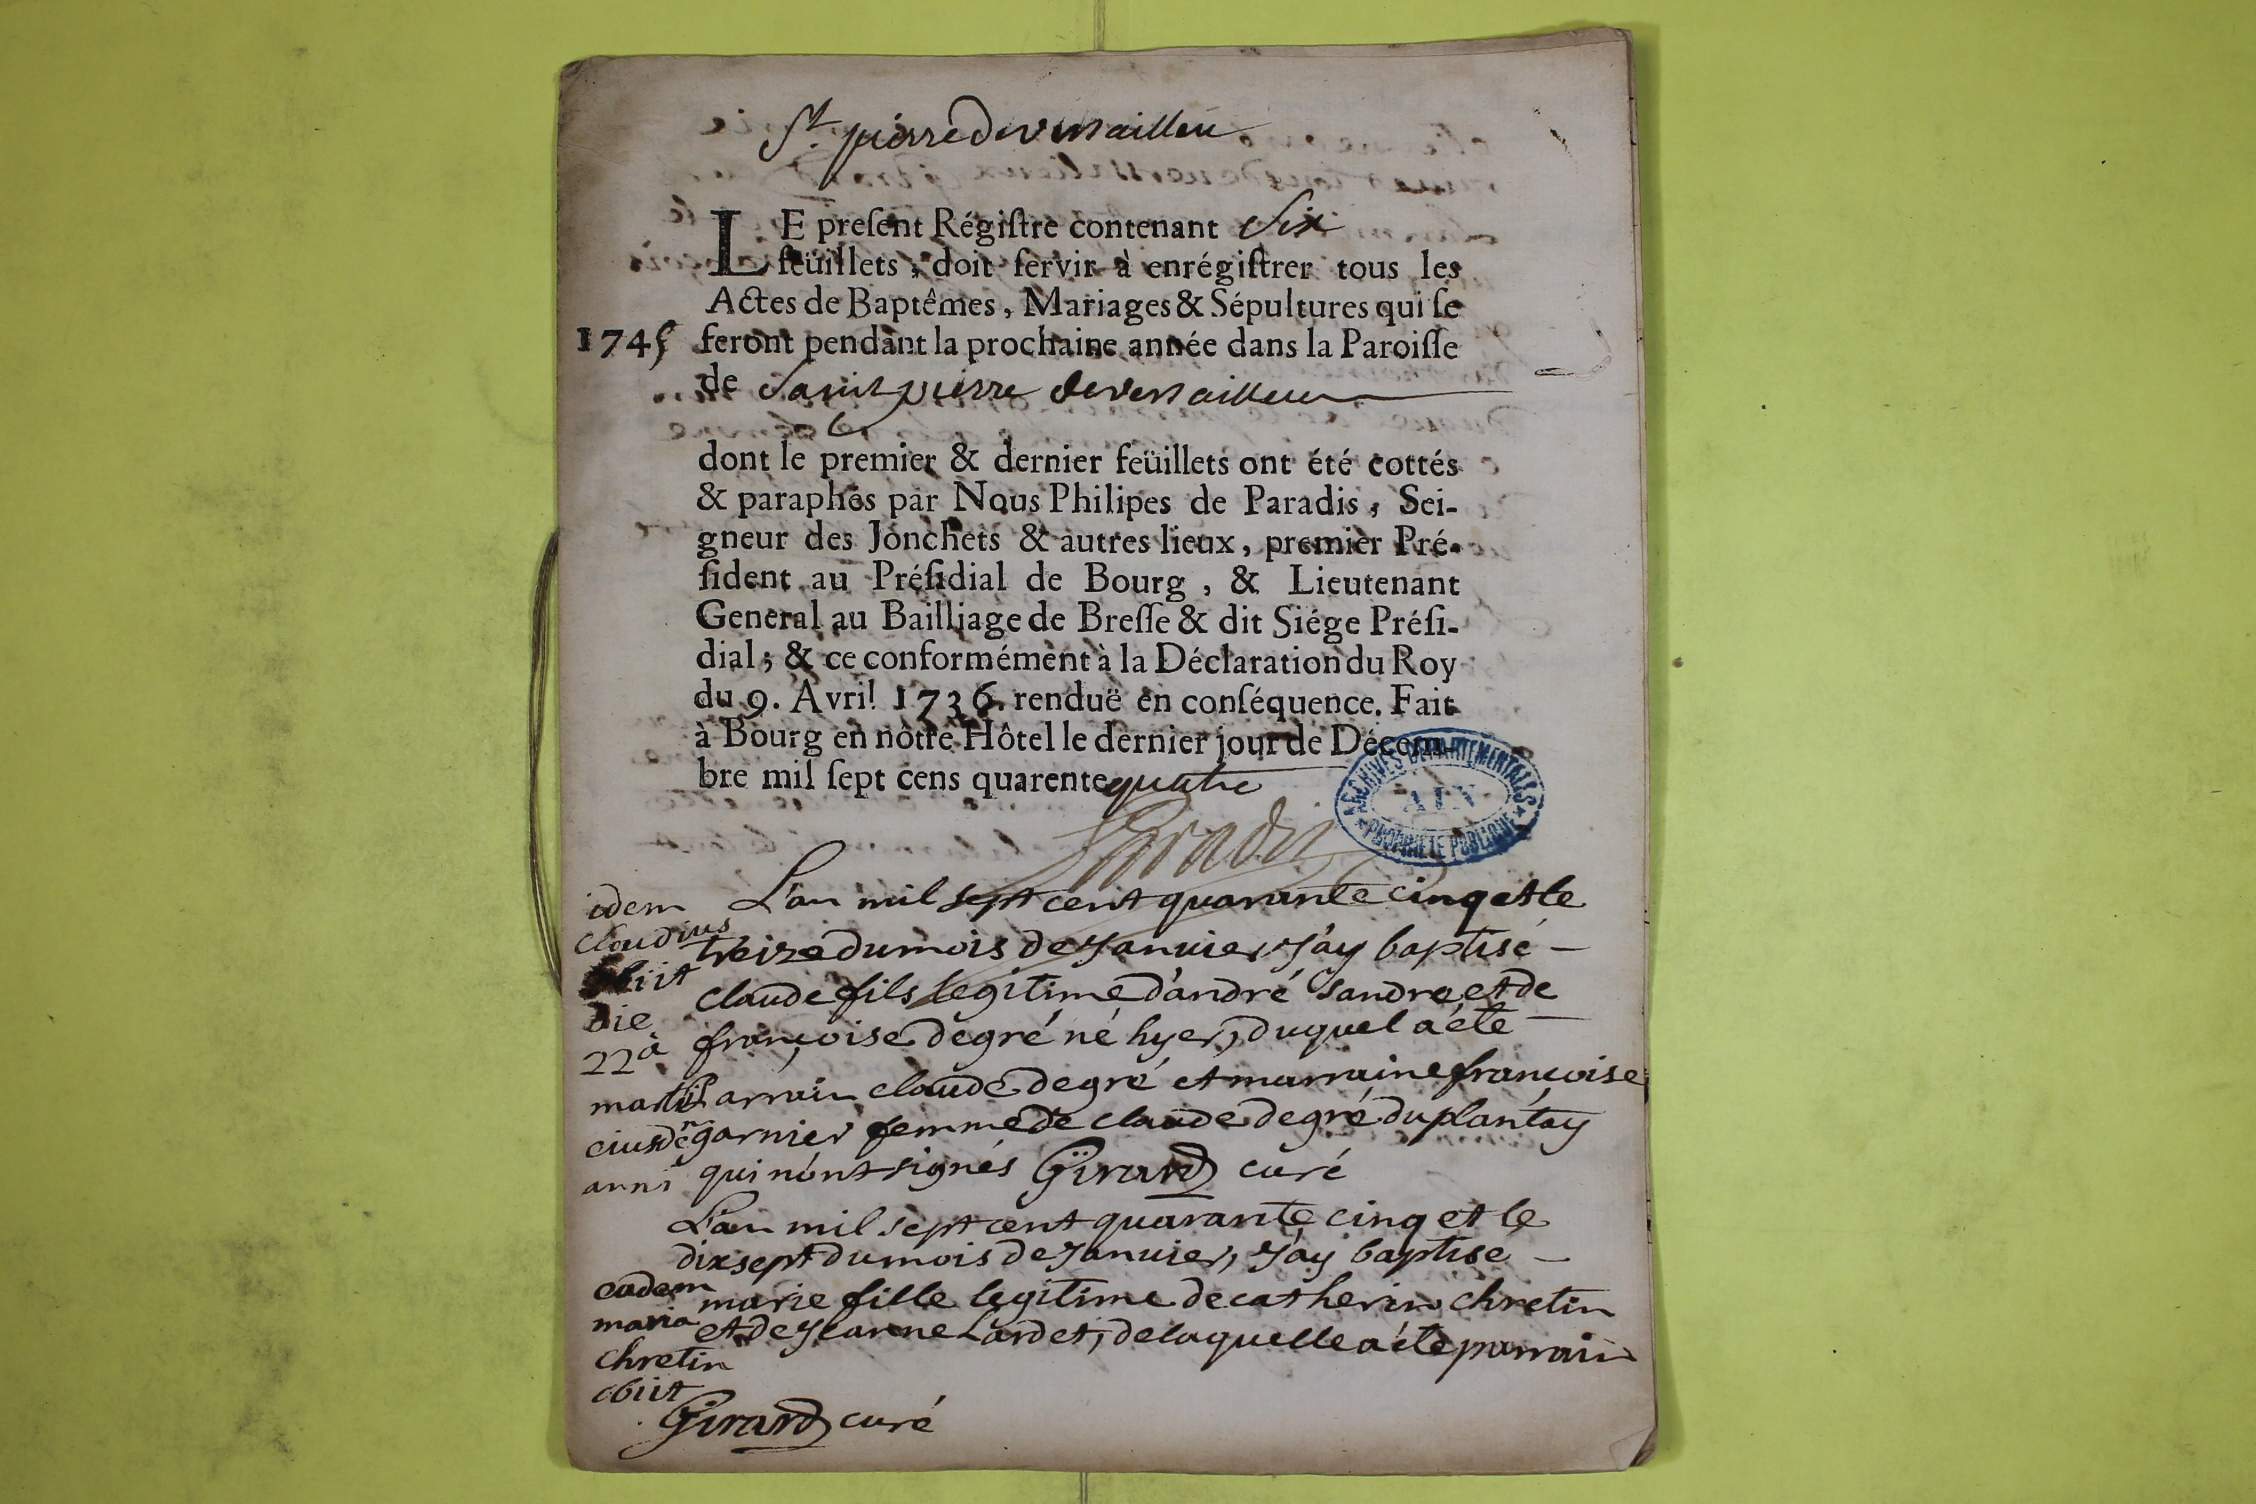 St. pierre de versailleu
LE preſent Régiſtre contenant Six
feüillets, doit ſervir à enrégiſtrer tous les
Actes de Baptêmes, Mariages & Sépultures qui ſe
1745 feront pendant la prochaine année dans la Paroiſſe
de Saint pierre de versailleu
dont le premier & dernier feüillets ont été cottés
& paraphés par Nous Philipes de Paradis, Sei-
gneur des Jonchets & autres lieux, premier Pré-
ſident au Préſidial de Bourg, & Lieutenant
General au Bailliage de Breſſe & dit Siége Préſi-
dial; & ce conformément à la Déclaration du Roy
du 9. Avril 1736. renduë en conſéquence. Fait
à Bourg en nôtre Hôtel le dernier jour de Décem-
bre mil ſept cens quarente quatre
Paradis
ARCHIVES DÉPARTEMENTALES
AIN
PROPRIÉTÉ PUBLIQUE
idem
claudius
obiit
die
22a
martii
eiusdem
anni
L'an mil sept cent quarante cinq et le
treize du mois de Janvier J'ay baptisé
claude fils legitime d'andré Jandre et de
françoise degré né hyer, duquel a été
Parrain claude degré et marraine françoise
garnier femme de claude degré du plantay
qui n'ont signés Girard curé
L'an mil sept cent quarante cinq et le
dixsept du mois de Janvier, J'ay baptisé
marie fille legitime de catherin chretin
et de Jeanne Lardet, de laquelle a été parrain
eadem
maria
chretin
obiit
Girard curé